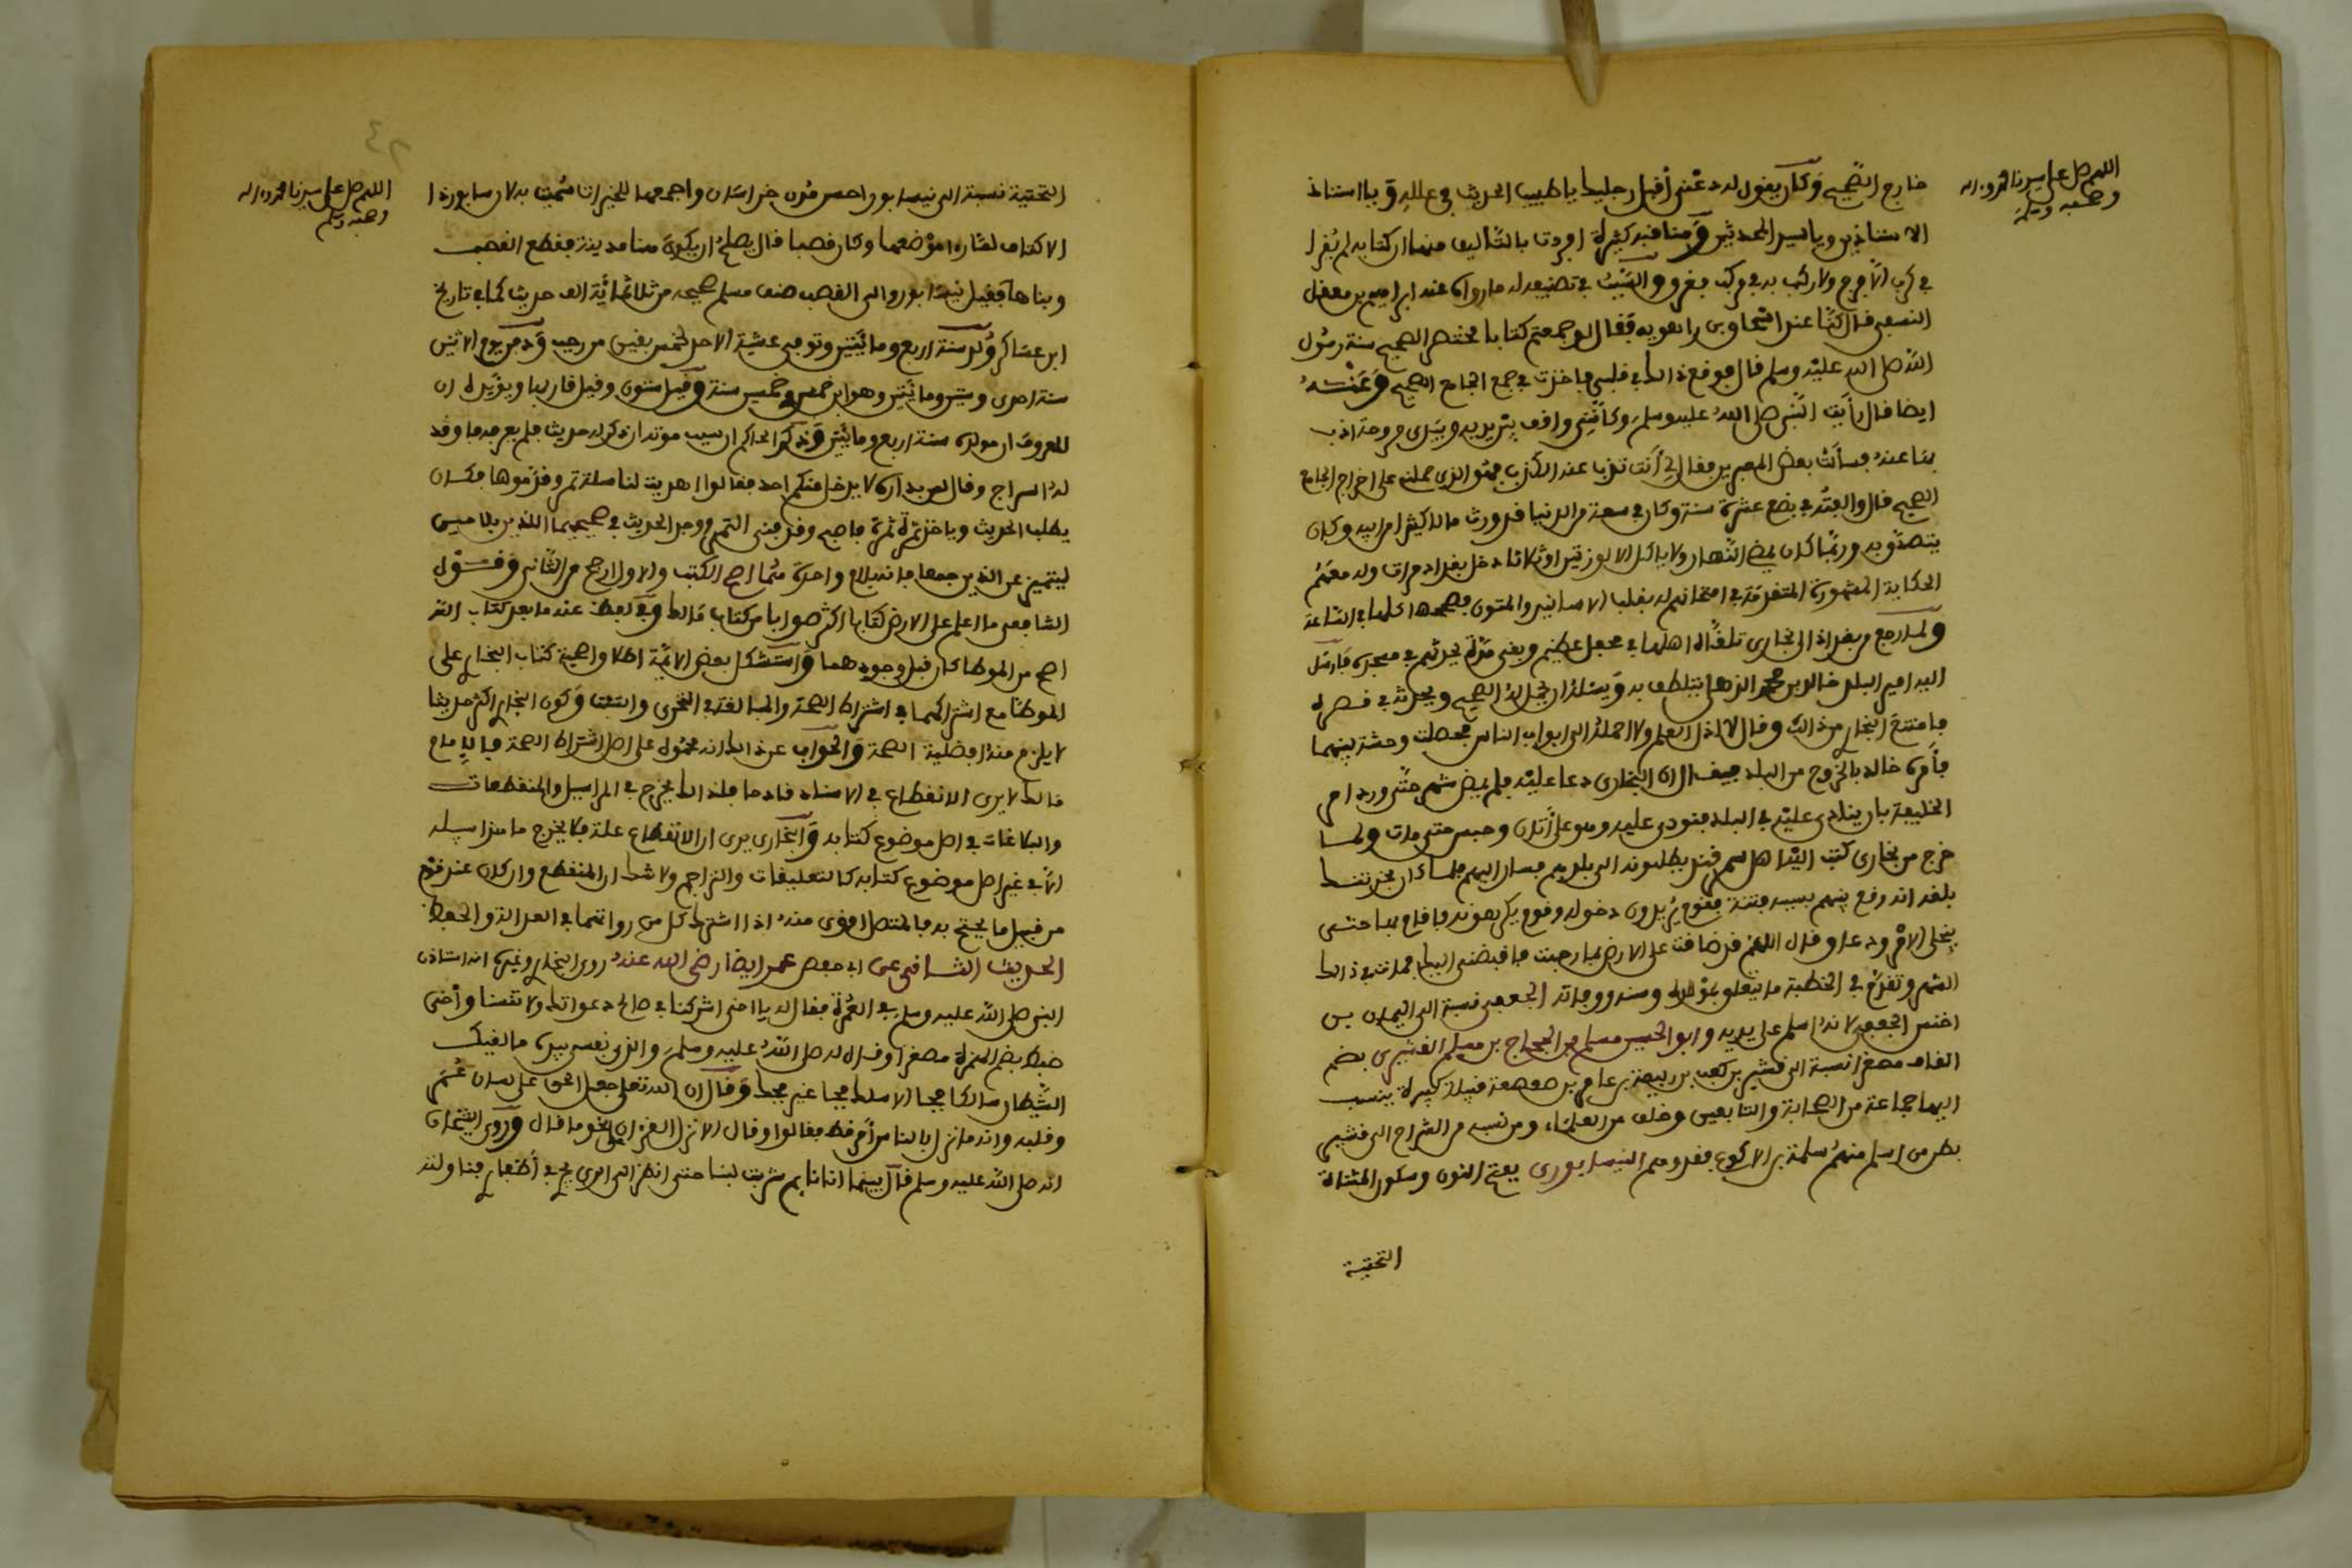 اللهم صل على سيدنا محمد وءاله
وصحبه وسلم
خارج الصحيح وكان يقول له دعني أقبل رجليك يا طبيب الحديث في علله ويا استاذ
الاستاذين ويا سيد المحدثين ومناقبه كثيرة افردت بالتأليف منها ان كتابه لم يقرا
في كرب الا فرج ولا ركب به في مركب فغرق والسبب في تصنيعه له ما رواه عنه ابراهيم بن معقل
النسفي قال كنا عند اسحاق بن راهويه فقال لو جمعتم كتابا مختصرا لصحيح سنة رسول
الله صلى الله عليه وسلم قال فوقع ذالك في قلبي فاخذت في جمع الجامع الصحيح وعنه
ايضا قال رأيت النبي صلى الله عليه وسلم وكأنني واقف بين يديه وبيدي مروحة اذب
بها عنه فسألت بعض المعبرين فقال لي أنت تذب عنه الكذب فهو الذي حملني على اخراج الجامع
الصحيح قال والفته في بضع عشرة سنة وكان في سعة من الدنيا قد ورث مالا كثيرا من ابيه وكان
يتصدق به وربما كان يمضي النهار ولا ياكل الا لوزتين او ثلاثا دخل بغداد مرات وله معهم
الحكاية المشهورة المتفرقة في امتحانهم له بقلب الاسانيد والمتون فصححها كلها في الساعة
ولما رجع من بغداد الى بخارى تلقاه اهلها في محفل عظيم وبقي مدة يحدثهم في مسجده فارسل
اليه امير البلد خالد بن محمد الذهلي يتلطف به ويسئله ان يحمل له الصحيح ويحدثه في قصره
فامتنع البخاري من ذالك وقال لا اذل العلم ولا احمله الى ابواب الناس فحصلت وحشة بينهما
فأمره خالد بالخروج من البلد فيقال ان البخاري دعا عليه فلم يمض شهر حتى ورد امر
الخليفة بان ينادى عليه في البلد فنودي عليه وهو على أتان وحبس حتى مات ولما
خرج من بخارى كتب اليه اهل سمرقند يطلبونه الى بلدهم فسار اليهم فلما كان بخرتنك
بلغه انه وقع بينهم بسببه فتنة فقوم يريدون دخوله وقوم يكرهونه فاقام بها حتى
ينجلي الامر ودعا وقال اللهم قد ضاقت علي الارض بما رحبت فاقبضني اليك فمات في ذالك
الشهر وتقدم في الخطبة ما يتعلق بمولده وسنه ووفاته الجعفي نسبة الى اليمان بن
اخنس الجعفي لانه اسلم على يديه وابو الحسين مسلم بن الحجاج بن مسلم القشيري بضم
القاف مصغرا نسبة الى قشير بن كعب بن ربيعة بن عامر بن صعصعة قبيلة كبيرة ينسب
اليها جماعة من الصحابة والتابعين وخلف من العلماء ومن نسبه من الشراح الى قشير
بطن من اسلم منهم سلمة بن الاكوع فقد وهم النيسابوري بفتح النون وسكون المثناة
التحتية
اللهم صل على سيدنا محمد وءاله
وصحبه وسلم
التحتية نسبة الى نيسابور احسن مدن خراسان واجمعها للخيرات سميت به لان سابور ذا
الاكتاف لما راى موضعها وكان قصبا قال يصلح ان يكون هنا مدينة فقطع القصب
وبناها فقيل نيسابور والني القصب صنف مسلم صحيحه من ثلاثمائة الف حديث كما في تاريخ
ابن عساكر ولد سنة اربع ومائتين وتوفي عشية الاحد لخمس بقين من رجب ودفن يوم الاثنين
سنة احدى وستين ومائتين وهو ابن خمس وخمسين سنة وقيل ستون وقيل قاربها ويؤيده ان
المعروف ان مولده سنة اربع ومائتين وذكر الحاكم ان سبب موته انه ذكر له حديث فلم يعرفه فاوقد
له السراج وقال لمن بداره لا يدخل منكم احد فقالوا اهديت لنا سلة تمر وقدموها فكان
يطلب الحديث وياخذ تمرة تمرة فاصبح وقد فني التمر ووجد الحديث في صحيحيهما اللذين بلا ميم
ليتميز عن الذين جمعا فانه بلام واحدة هما اصح الكتب والاول ارجح من الثاني وقول
الشافعي ما اعلم على الارض كتابا اكثر صوابا من كتاب مالك وفي لفظ عنه ما بعد كتاب الله
اصح من الموطا كان قبل وجودهما واستشكل بعض الائمة اطلاق اصحية كتاب البخاري على
الموطا مع اشتراكهما في اشتراط الصحة والمبالغة في التحري والتثبت وكون البخاري اكثر حديثا
لا يلزم منه افضلية الصحة والجواب عن ذالك انه محمول على اصل اشتراط الصحة فالامام
مالك لا يرى الانقطاع في الاسناد قادحا فلذالك يخرج في المراسيل والمنقطعات
والبلاغات في اصل موضوع كتابه والبخاري يرى ان الانقطاع علة فلا يخرج ما هذا سبيله
الا في غير اصل موضوع كتابه كالتعليقات والتراجم ولا شك ان المنقطع وان كان عند قوم
من قبيل ما يحتج به فالمتصل اقوى منه اذا اشترك كل من رواتهما في العدالة والحفظ
الحديث الثاني عن ابي حفص عمر ايضا رضي الله عنه روى البخاري وغيره انه استاذن
النبي صلى الله عليه وسلم في العمرة فقال له يا اخي اشركنا في صالح دعواتك ولا تنسنا وأخي
ضبط بضم الهمزة مصغرا وقال له صلى الله عليه وسلم والذي نفسي بيده ما لقيك
الشيطان سالكا فجا الا سلك فجا غير فجك وقال ان الله تعلى جعل الحق على لسان عمر
وقلبه وانه ما نزل بالناس أمر قط فقالوا وقال الا نزل القرءان على نحو ما قال وروى الشيخان
انه صلى الله عليه وسلم قال بينما انا نائم شربت لبنا حتى انظر الى الري يجري في أظفاري فناولته